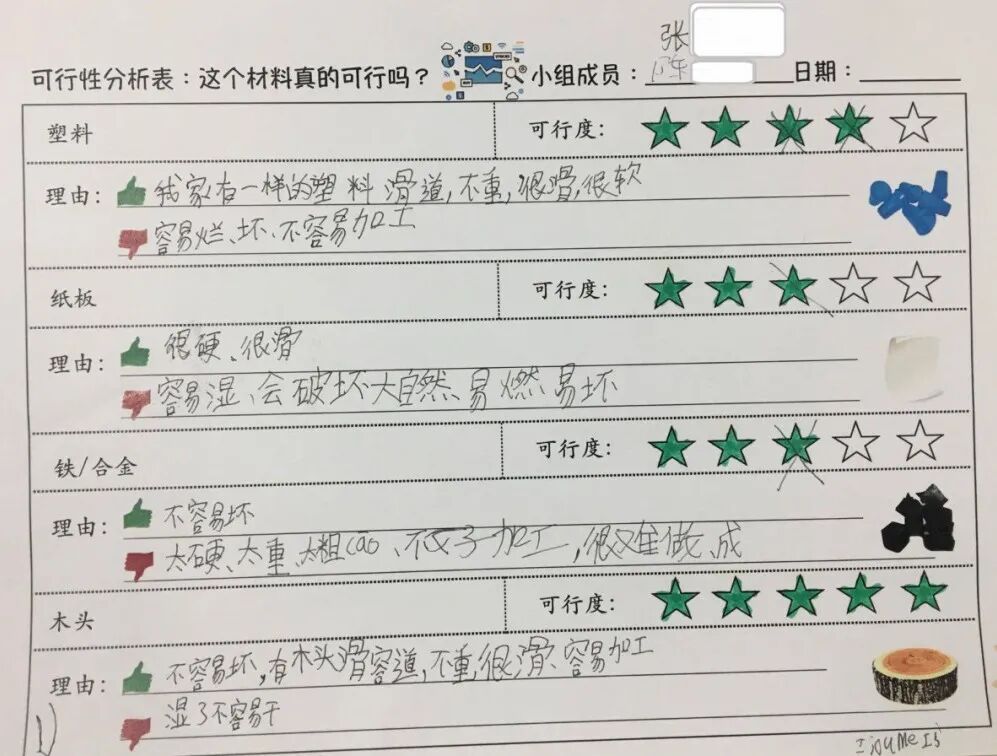 张
可行性分析表：这个材料真的可行吗？ 小组成员： 日期：
塑料 可行度：
理由： 我家有一样的塑料滑道,不重,很滑,很软
容易烂、坏、不容易加工
纸板 可行度：
理由： 很硬、很滑
容易湿、会破坏大自然、易燃易坏
铁/合金 可行度：
理由： 不容易坏
太硬、太重、太粗cao、不好加工,很难做成
木头 可行度：
理由： 不容易坏,有木头滑容道,不重,很滑、容易加工
湿了不容易干